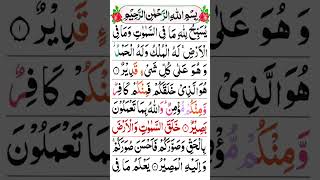 بِسْمِ اللهِ الرَّحْمٰنِ الرَّحِيْمِ
يُسَبِّحُ لِلّٰهِ مَا فِى السَّمٰوٰتِ وَمَا فِى
الْاَرْضِ ۚ لَهُ الْمُلْكُ وَلَهُ الْحَمْدُ
وَ هُوَ عَلٰى كُلِّ شَىْءٍ قَدِيْرٌ ۝۱
هُوَ الَّذِىْ خَلَقَكُمْ فَمِنْكُمْ كَافِرٌ
وَّ مِنْكُمْ مُّؤْمِنٌ ؕ وَاللهُ بِمَا تَعْمَلُوْنَ
بَصِيْرٌ ۝ خَلَقَ السَّمٰوٰتِ وَالْاَرْضَ
بِالْحَقِّ وَ صَوَّرَكُمْ فَاَحْسَنَ صُوَرَكُمْ
وَ اِلَيْهِ الْمَصِيْرُ ۝ يَعْلَمُ مَا فِى